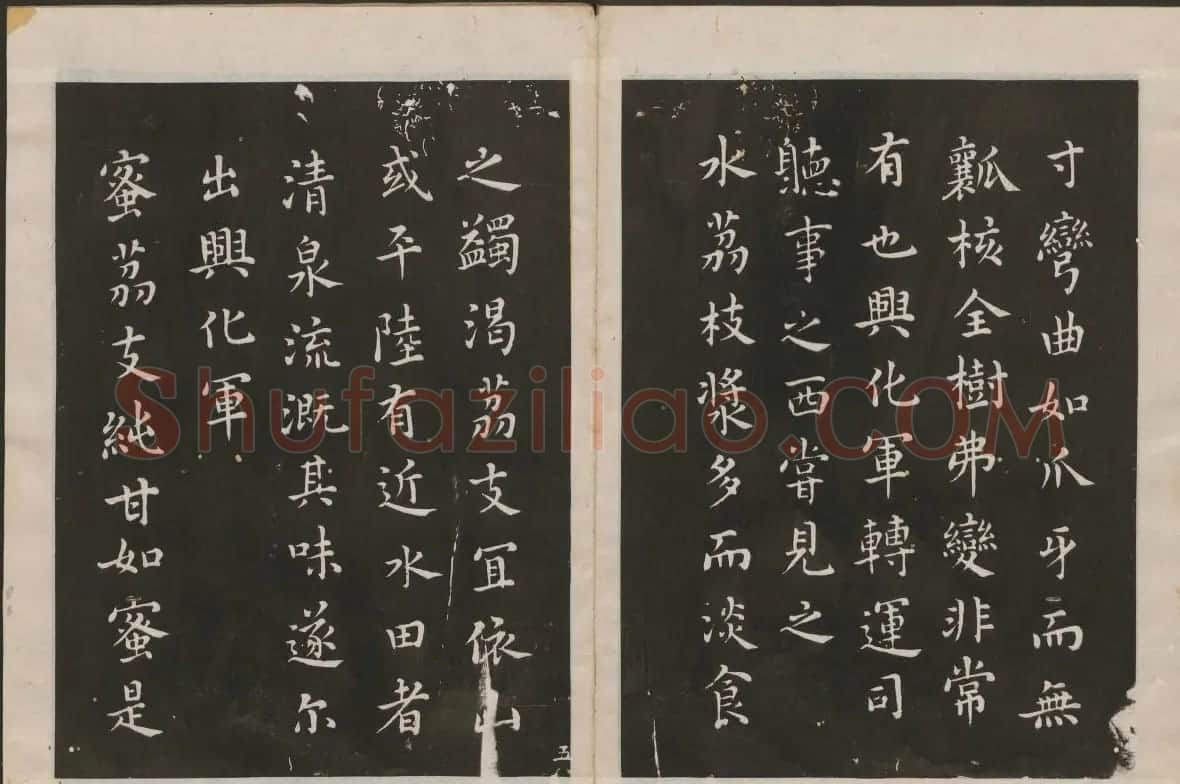 寸彎曲如爪牙而無
瓤核全樹弗變非常
有也興化軍轉運司
聽事之西甞見之
水荔枝漿多而淡食
之蠲渴荔支宜依山
或平陸有近水田者
清泉流溉其味遂尔
出興化軍
蜜荔支純甘如蜜是
五
Shufaziliao.COM